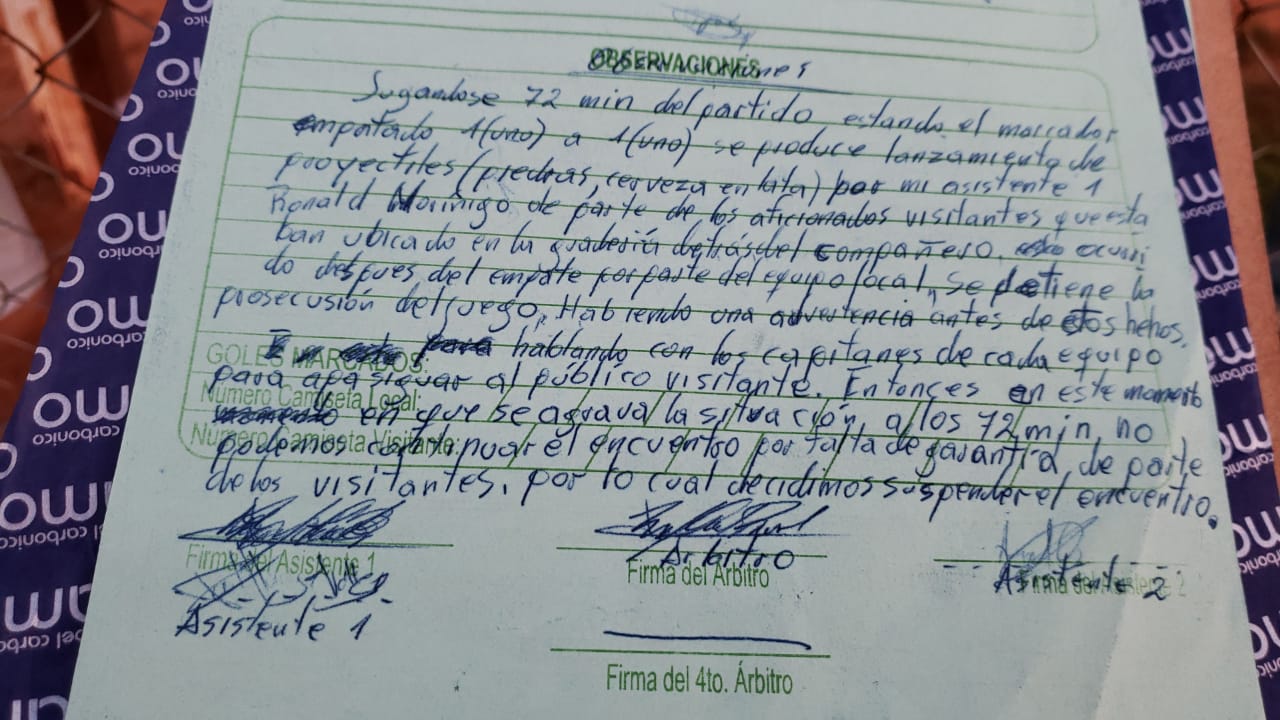 OBSERVACIONES
Jugandose 72 min del partido estando el marcador
empatado 1(uno) a 1(uno) se produce lanzamiento de
proyectiles (piedras, cerveza en lata) por mi asistente 1
Ronald Morinigo de parte de los aficionados visitantes que esta
ban ubicado en la graderia detrás del compañero, ocurri
do despues del empate por parte del equipo local, se detiene la
prosecusión del juego, Habiendo una advertencia antes de estos hehos.
hablando con los capitanes de cada equipo
GOLES MARCADOS:
para apasiguar al público visitante. Entonces en este momento
Número Camiseta Local:
en que se agrava la situación, a los 72 min, no
Número Camiseta Visitante:
podemos continuar el encuentro por falta de garantía, de parte
de los visitantes, por lo cual decidimos suspender el encuentro.
Firma del Asistente 1
Arbitro
Firma del Árbitro
Asistente 2
Firma del Asistente 2
Asistente 1
Firma del 4to. Árbitro
carbonico